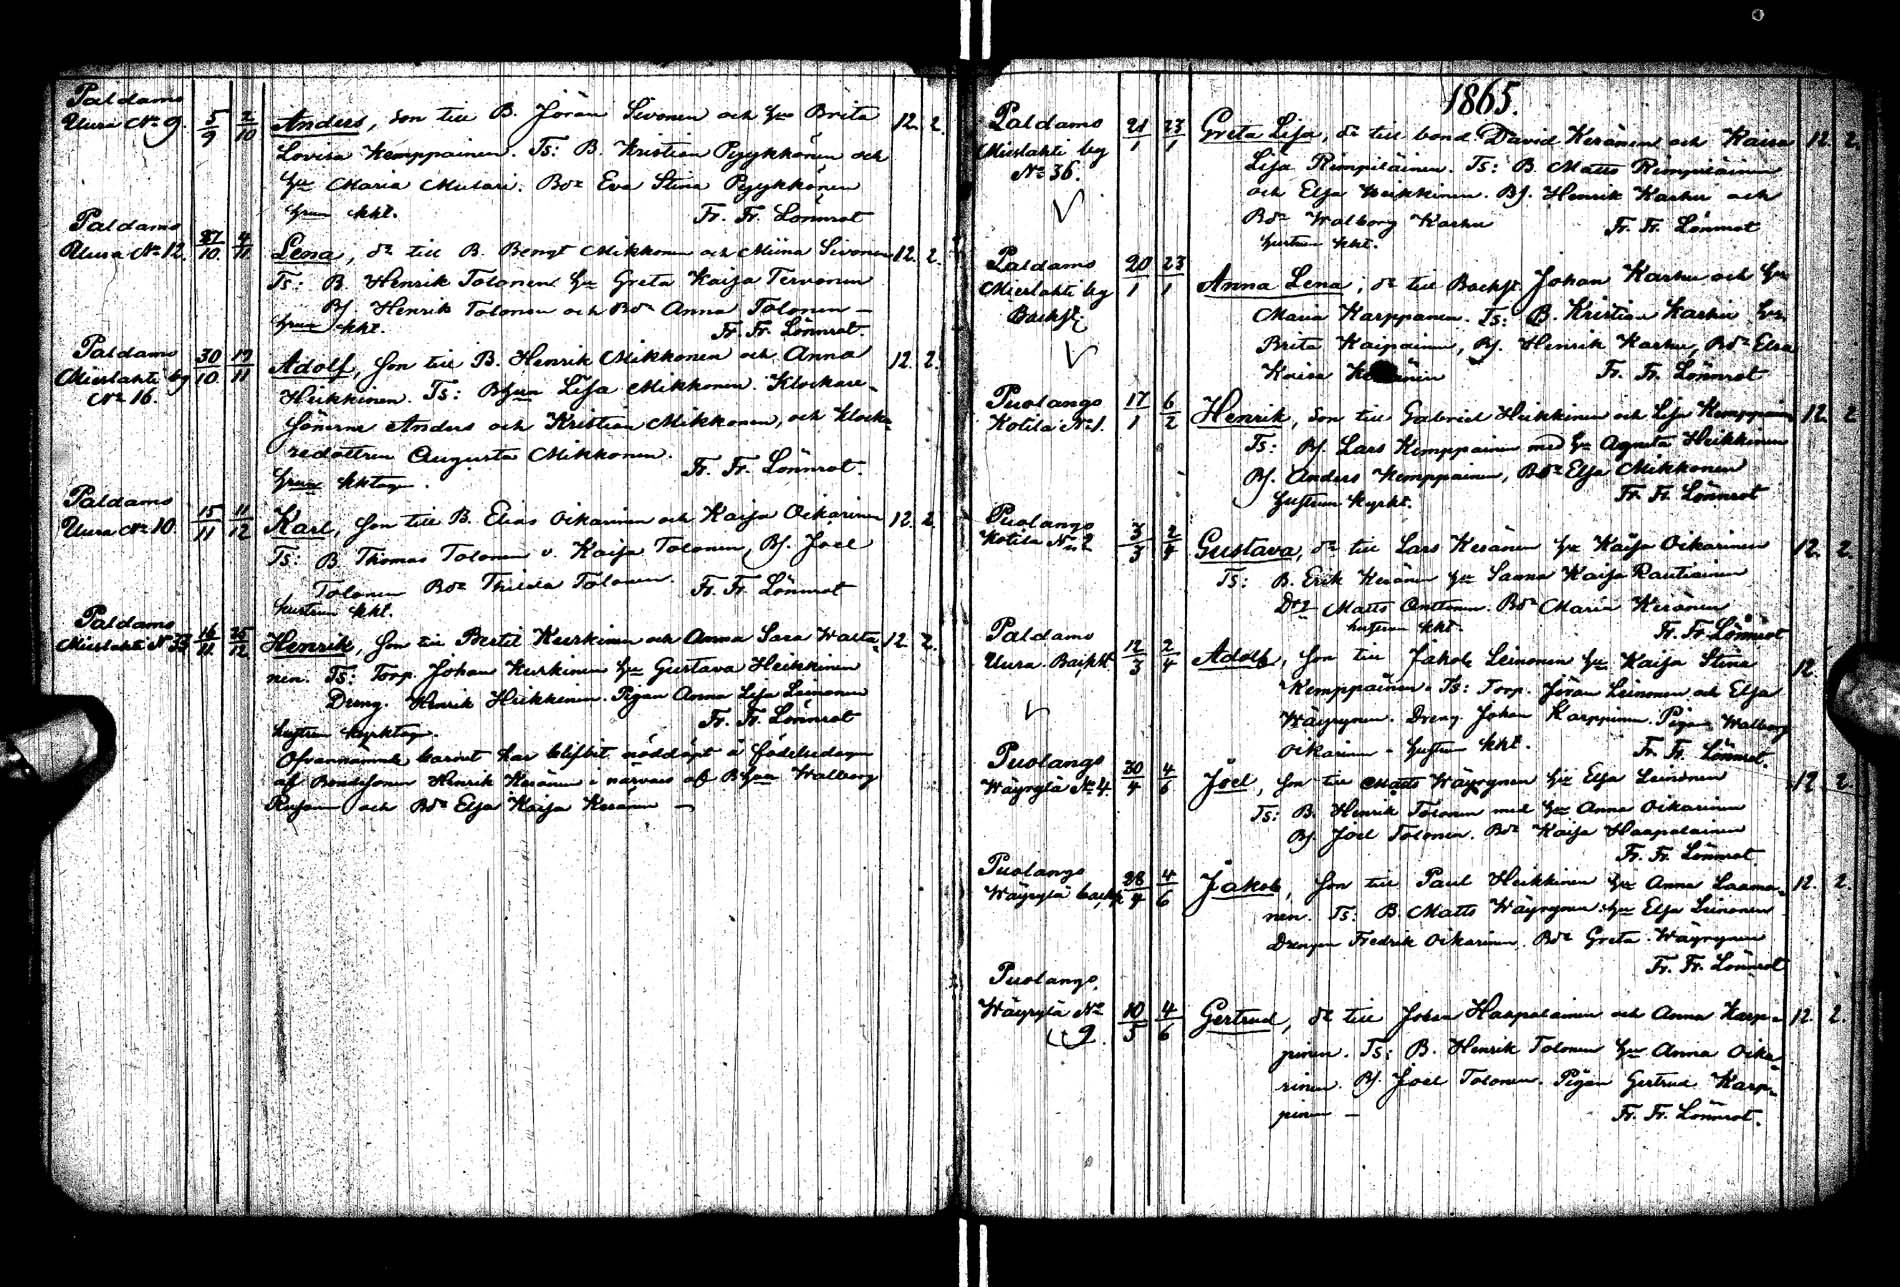 Paldamo
Uura No 9. 5/9 2/10 Anders, son till B. Jöran Sivonen och hu Brita 12. 2.
Lovisa Kemppainen. Ts: B. Kristian Pyykkönen och
hu Maria Mulari. Bdr Eva Stina Pyykkönen
hun kkt. Fr. Fr. Lönnrot
Paldamo
Uura No 12. 27/10 4/11 Lena, dr till B. Bengt Mikkonen och Miina Sivonen 12. 2.
Ts: B. Henrik Tolonen hu Greta Kaisa Tervonen
Bs. Henrik Tolonen och Bdr Anna Tolonen –
hun kkt. Fr. Fr. Lönnrot.
Paldamo
Mieslahti by 30/10 12/11 Adolf, son till B. Henrik Mikkonen och Anna 12. 2.
No 16.
Heikkinen. Ts: Bhun Lisa Mikkonen. Klockare-
sönerne Anders och Kristian Mikkonen, och klocka-
redottren Augusta Mikkonen.
hun kktagn. Fr. Fr. Lönnrot.
Paldamo
Uura No 10. 15/11 11/12 Karl, son till B. Elias Oikarinen och Kaisa Oikarinen 12. 2.
Ts: B. Thomas Tolonen o. Kaisa Tolonen, Bs. Joel
Tolonen Bdr Thilda Tolonen. Fr. Fr. Lönnrot
hustrun kkt.
Paldamo
Mieslahti No 33 16/11 25/12 Henrik, son till Bertil Kurkinen och Anna Sara Walta- 12. 2.
nen. Ts: Torp. Johan Kurkinen hu Gustava Heikkinen
Dreng. Henrik Heikkinen. Pigan Anna Lisa Leinonen
Fr. Fr. Lönnrot
hustrun kyrktagn.
Ofvannämnde barnet har blifvit nöddöpt å födelsedagen
af Bondesonen Henrik Keränen i närvaro af Bhun Walborg
och Bdr Elsa Kaisa Keränen –
1865.
Paldamo 21/1 23/1 Greta Lisa, dr till bond. David Keränen och Kaisa 12. 2.
Mieslahti by
No 36.
Lisa Rimpiläinen. Ts: B. Matts Rimpiläinen
och Elsa Heikkinen. Bs. Henrik Karhu och
Bdr Walborg Karhu Fr. Fr. Lönnrot
hustrun kkt.
Paldamo 20/1 23/1
Mieslahti by Anna Lena, dr till Backst. Johan Karhu och hu
Backst.
Maria Karppanen. Ts: B. Kristian Karhu hu
Brita Kaipainen, Bs. Henrik Karhu, Bdr Elsa
Kaisa Fr. Fr. Lönnrot
Puolango 17/1 6/2 Henrik, son till Gabriel Heikkinen och Lisa Kemppainen 12. 2
Kotila No 1.
Ts: Bs. Lars Kemppainen med hu Agneta Heikkinen
Bs. Anders Kemppainen, Bdr Elsa Mikkonen
hustrun kyrkt. Fr. Fr. Lönnrot
Puolango
Kotila No 2 3/3 2/4 Gustava, dr till Lars Kesänen hu Kaisa Oikarinen 12. 2.
Ts: B. Erik Kesänen hu Sanna Kaisa Rautiainen
Drg Matts Anttonen. Bdr Maria Kesänen
hustrun kkt. Fr. Fr. Lönnrot
Paldamo
Uura. Backst. 12/3 2/4 Adolf, son till Jakob Leinonen hu Kaisa Stina 12
Kemppainen. Ts: Torp. Jöran Leinonen och Elsa
Wäyrynen. Dreng Johan Karppinen. Pigan Walborg
Oikarinen – hustrun kkt. Fr. Fr. Lönnrot.
Puolango
Wäyrylä No 4. 30/4 4/6 Joel, son till Matts Wäyrynen hu Elsa Leinonen 12. 2.
Ts: B. Henrik Tolonen med hu Anna Oikarinen
Bs. Joel Tolonen. Bdr Kaisa Haapalainen
Fr. Fr. Lönnrot
Puolango
Wäyrylä backst 28/4 4/6 Jakob, son till Paul Heikkinen hu Anna Laama- 12. 2.
nen. Ts: B. Matts Wäyrynen hu Elsa Leinonen
Drengen Fredrik Oikarinen. Bdr Greta Wäyrynen
Fr. Fr. Lönnrot
Puolango.
Wäyrylä No 9. 10/5 4/6 Gertrud, dr till Johan Haapalainen och Anna Karp- 12. 2.
pinen. Ts: B. Henrik Tolonen hu Anna Oika
rinen. Bs. Joel Tolonen. Pigan Gertrud Karp-
pinen – Fr. Fr. Lönnrot.